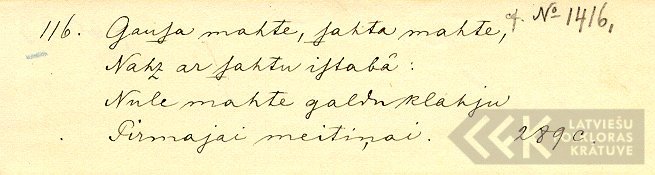 116. Gausa mahte, sahta mahte, cf. № 1416,
Nahz ar sahtu istabâ:
Nule mahte galdu klahju
Pirmajai meitiņai. 289c.
LATVIEŠU
FOLKLORAS
KRĀTUVE